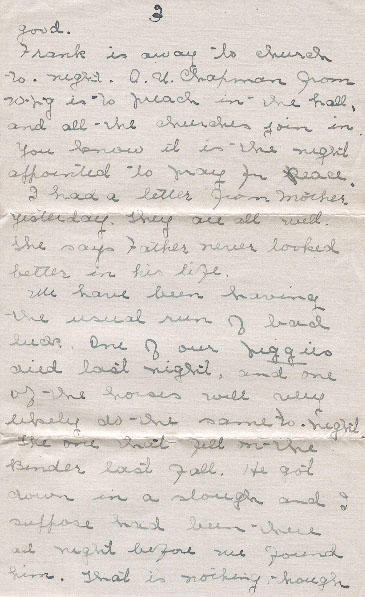 3
good.
Frank is away to church
to-night. A. U. Chapman from
W-pg is to preach in the hall,
and all the churches join in.
You know it is the night
appointed to pray for Peace.
I had a letter from Mother
yesterday. They are all well.
She says Father never looked
better in his life.
We have been having
the usual run of bad
luck. One of our piggies
died last night, and one
of the horses will very
likely do the same to-night.
The one that fell on the
Binder last Fall. He got
down in a slough and I
suppose had been there
all night before we found
him. That is nothing though